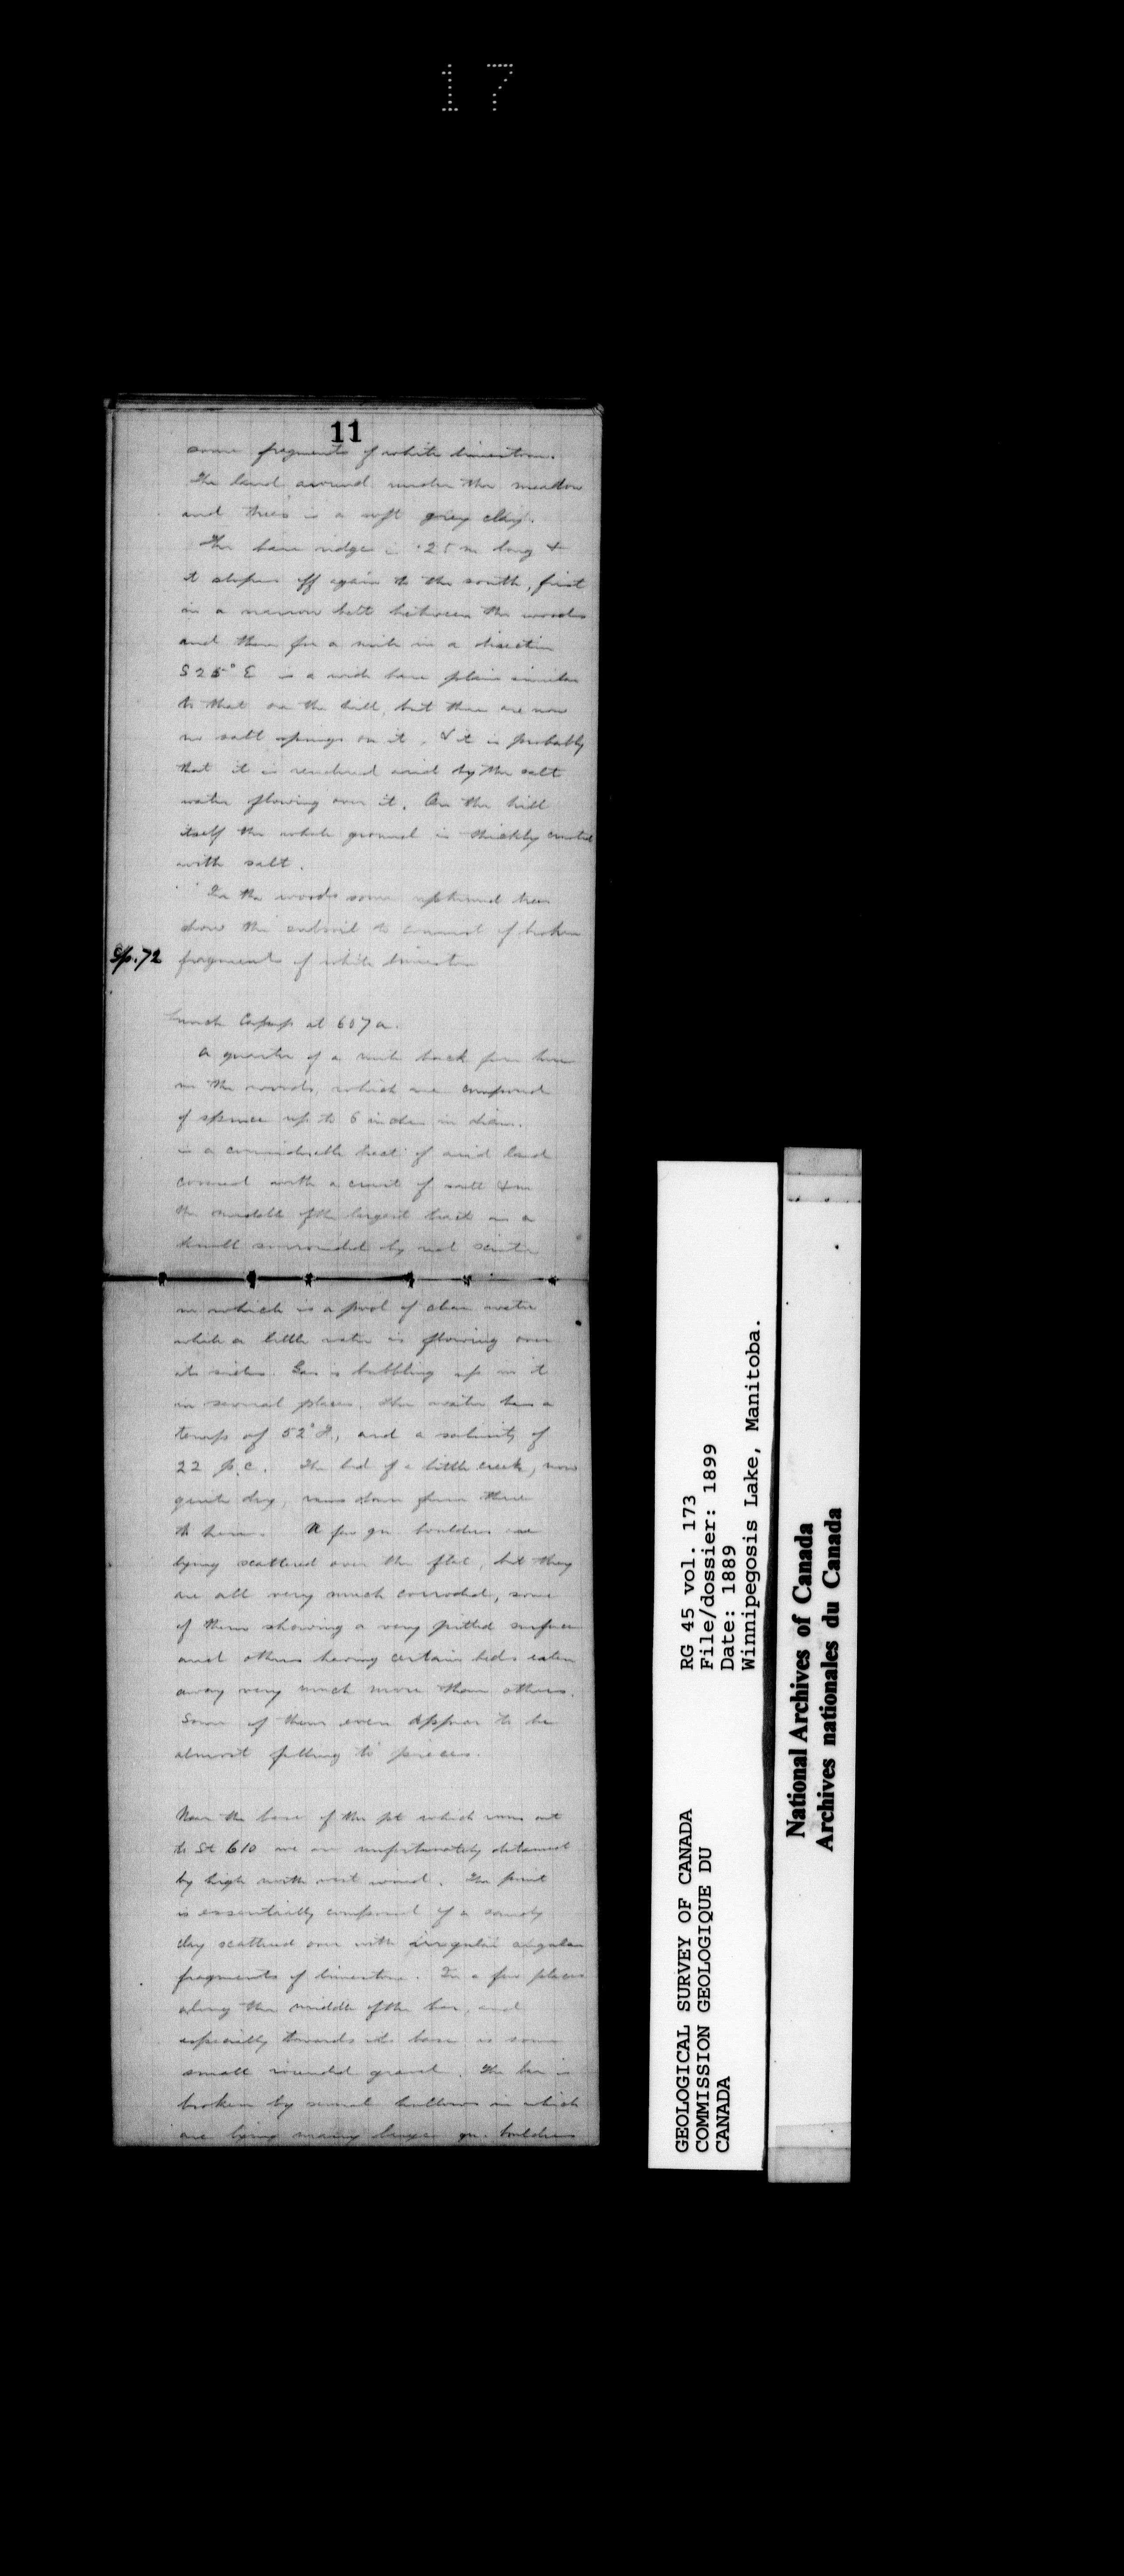 17
11
some fragments of white limestone.
The land around under the meadow
and trees is a soft grey clay.
The bare ridge is .25 m long &
it slopes off again to the south, first
in a narrow belt between the woods
and then for a mile in a direction
S 25° E is a wide bare plain similar
to that on the hill, but there are now
no salt springs on it, & it is probably
that it is rendered arid by the salt
water flowing over it. On the hill
itself the whole ground is thickly crusted
with salt.
In the woods some upturned trees
show the subsoil to consist of broken
Sp. 72 fragments of white limestone
Lunch Camp at 607a.
A quarter of a mile back from here
in the woods, which are composed
of spruce up to 6 inches in diam.
is a considerable tract of arid land
covered with a crust of salt & in
the middle of the largest tract is a
knoll surrounded by red sinter
in which is a pool of clear water
while a little water is flowing over
its sides. Gas is bubbling up in it
in several places. The water has a
temp of 52° F., and a salinity of
22 p.c. The bed of a little creek, now
quite dry, runs down from there
to here. A few gn. boulders are
lying scattered over the flat, but they
are all very much corroded, some
of them showing a very pitted surface
and others having certain beds eaten
away very much more than others.
Some of them even appear to be
almost falling to pieces.
Near the base of the pt which runs out
to St 610 we are unfortunately detained
by high north west wind. The point
is essentially composed of a sandy
clay scattered over with irregular angular
fragments of limestone. In a few places
along the middle of the bar, and
especially towards its base is some
small rounded gravel. The bar is
broken by several hollows in which
are lying many large gn. boulders
GEOLOGICAL SURVEY OF CANADA
COMMISSION GEOLOGIQUE DU
CANADA
RG 45 vol. 173
File/dossier: 1899
Date: 1889
Winnipegosis Lake, Manitoba.
National Archives of Canada
Archives nationales du Canada